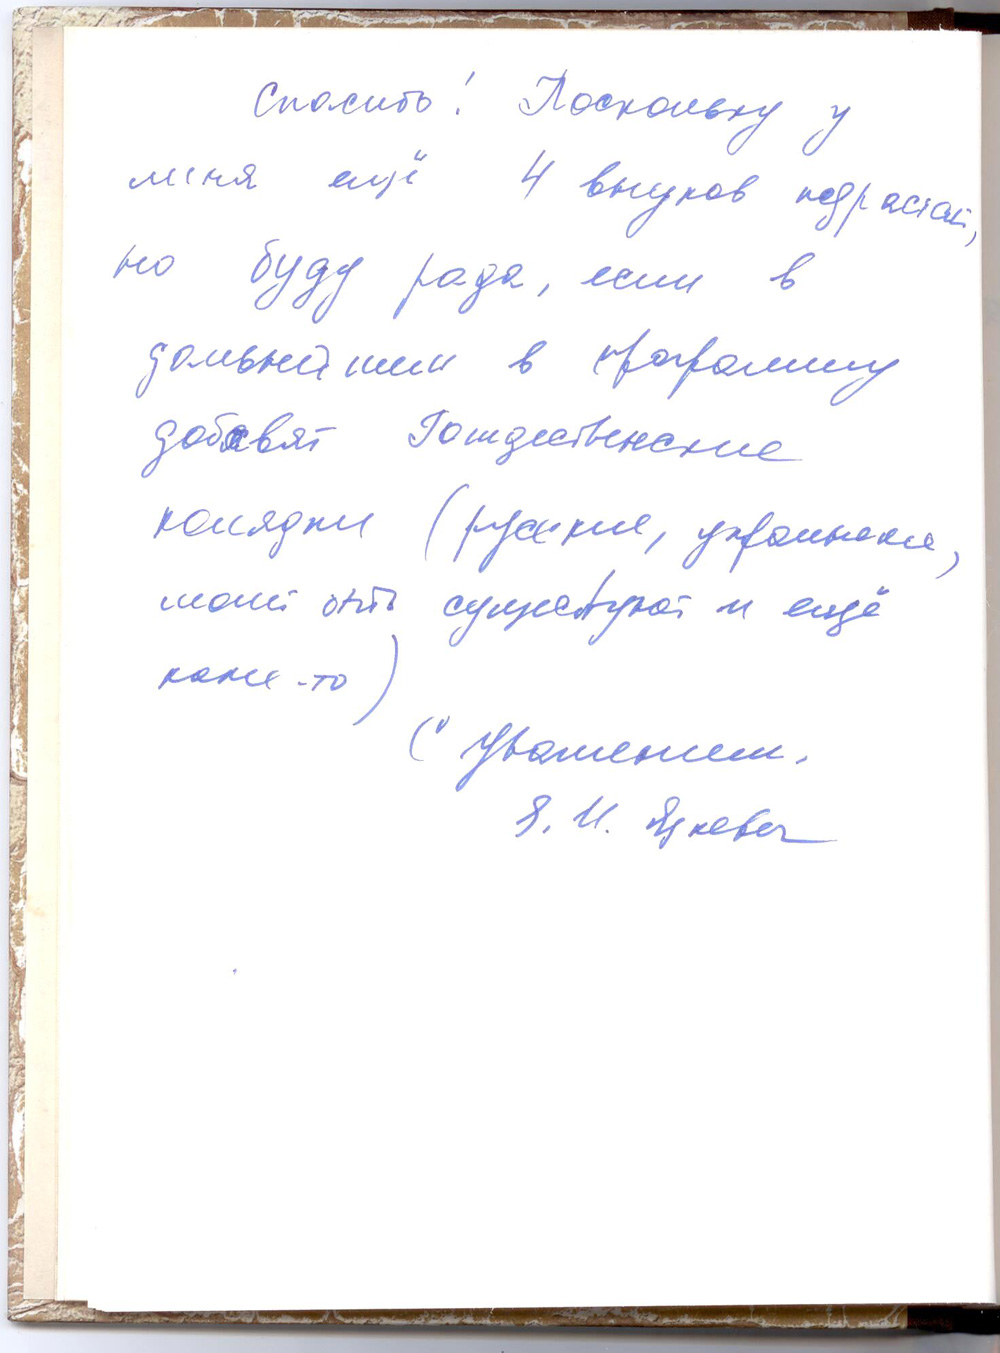 Спасибо! Поскольку у
меня ещё 4 внуков подрастает,
но буду рада, если в
дальнейшем в программу
добавят Рождественские
колядки (русские, украинские,
может быть существуют и ещё
какие-то)
С уважением.
И.